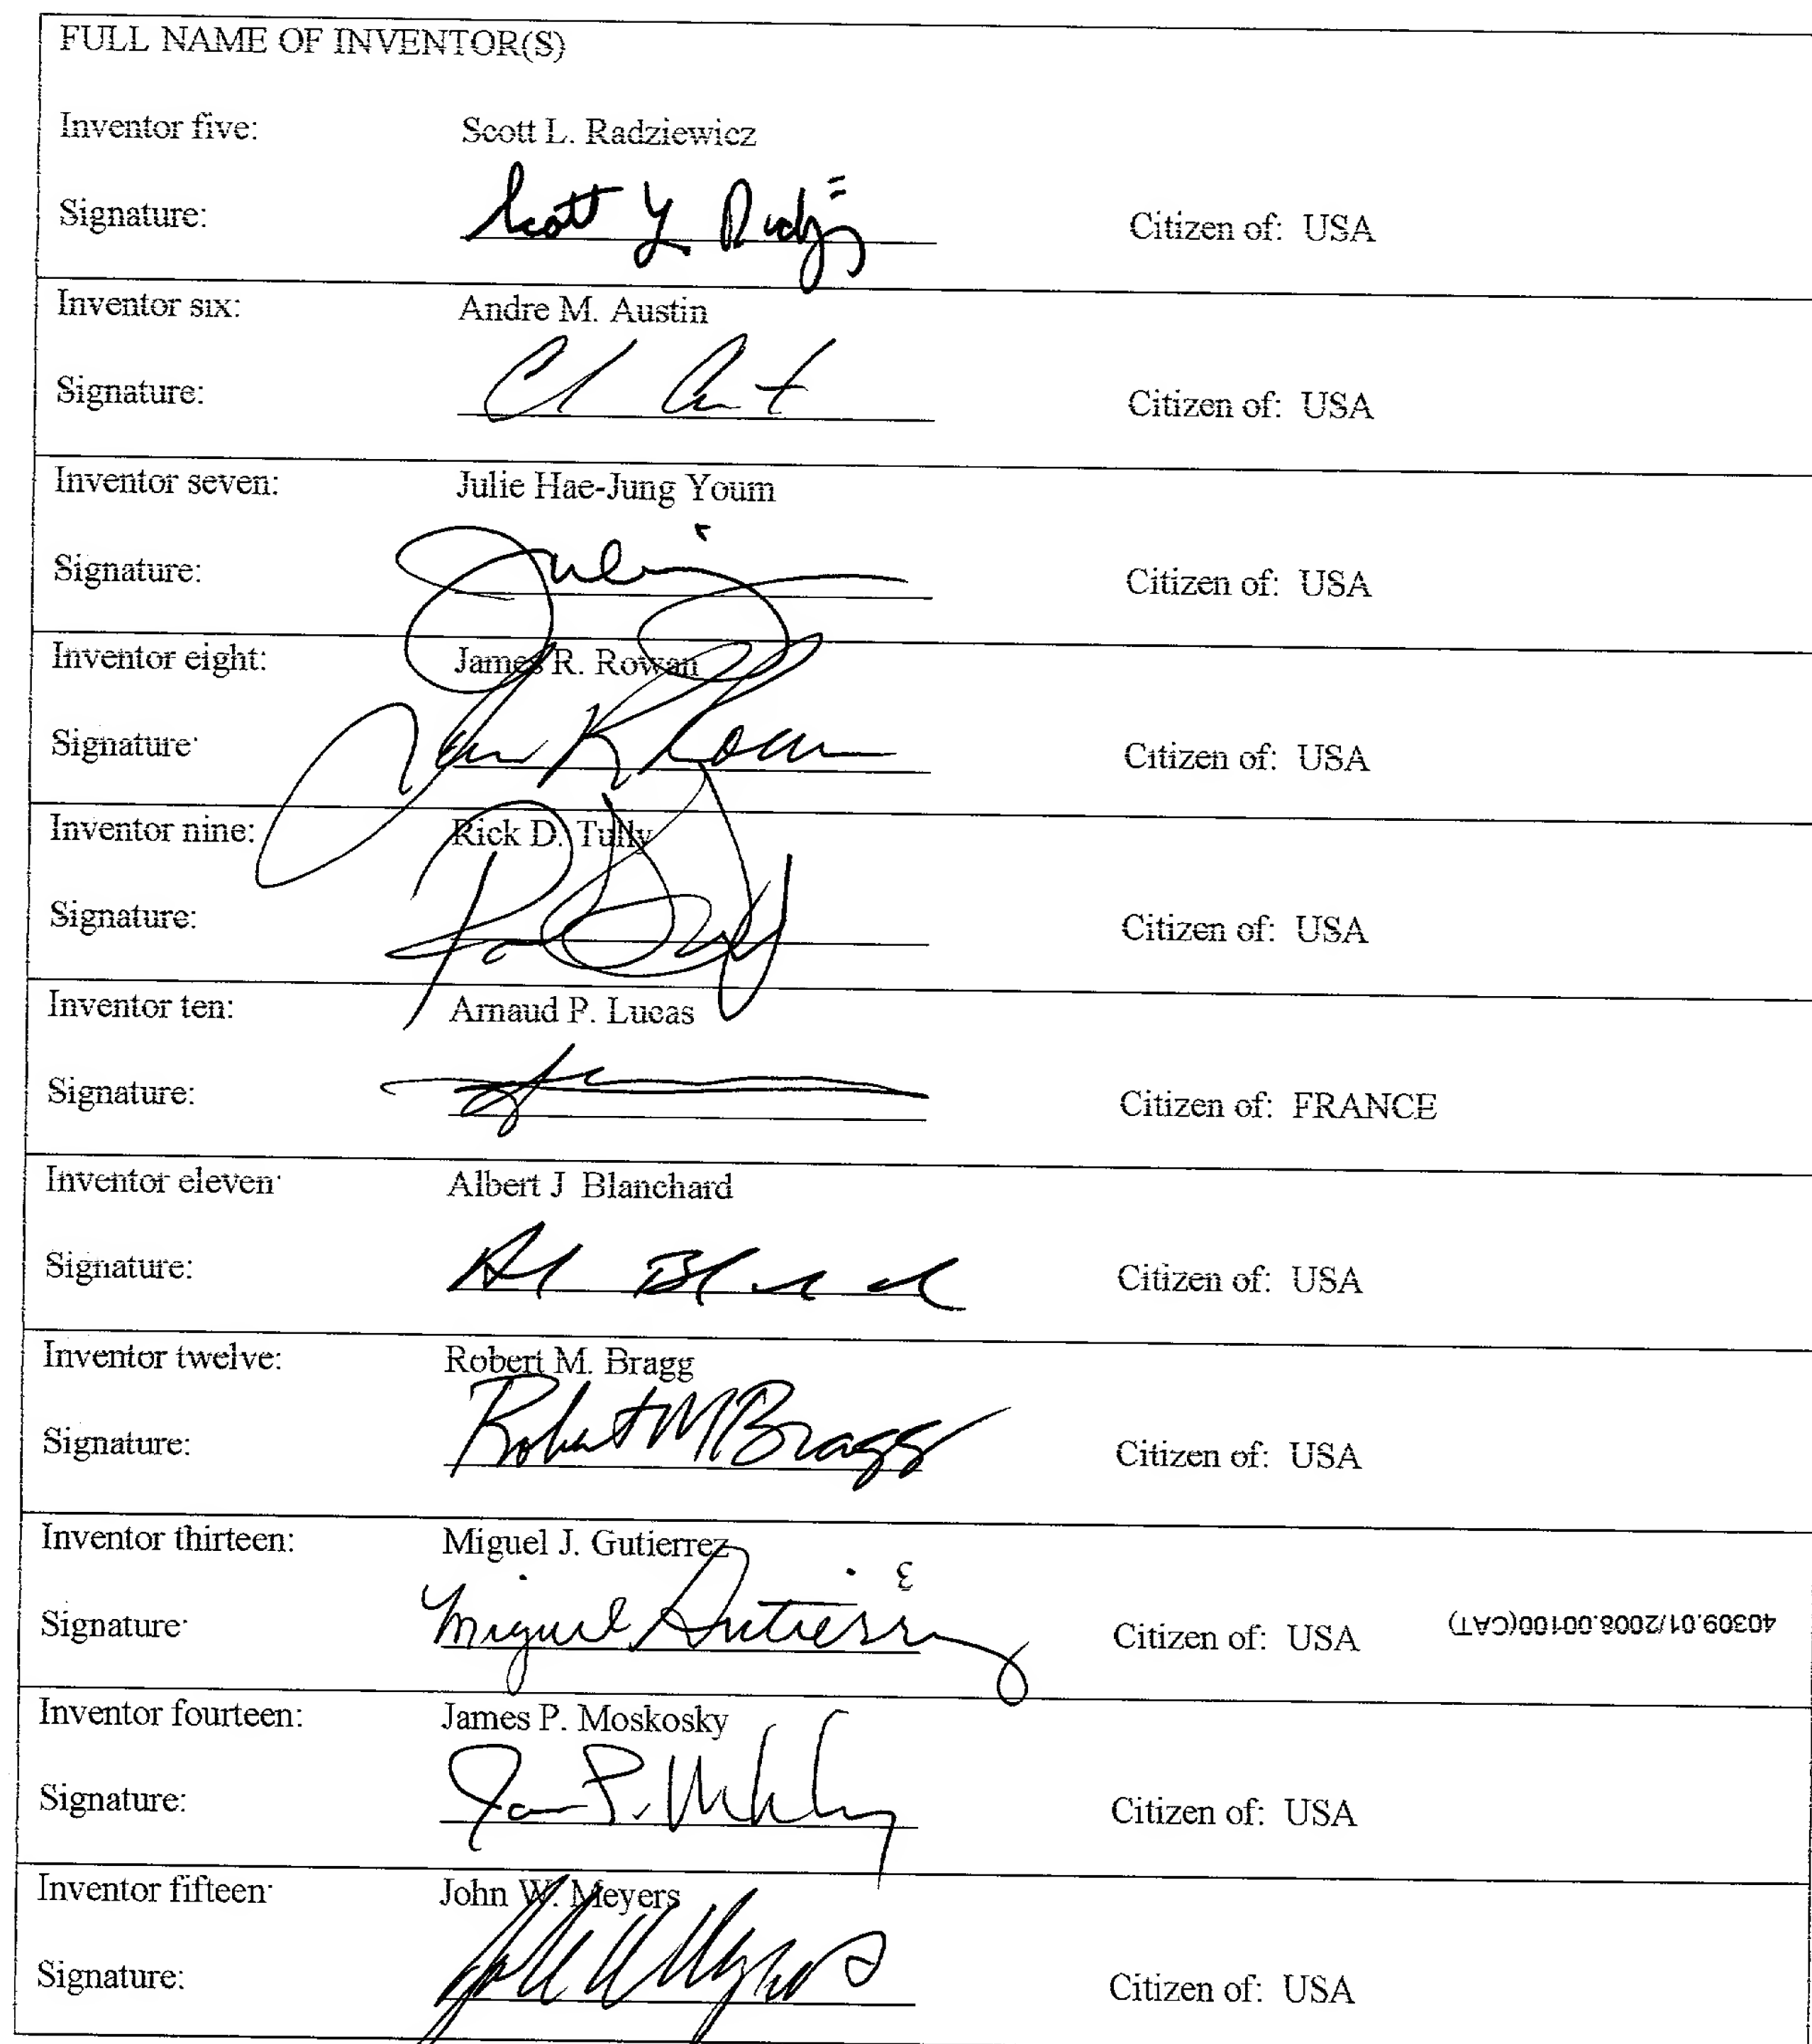 FULL NAME OF INVENTOR(S)
Inventor five: Scott L. Radziewicz
Signature: Scott L Citizen of: USA
Inventor six: Andre M. Austin
Signature: Citizen of: USA
Inventor seven: Julie Hae-Jung Youm
Signature: Julie Citizen of: USA
Inventor eight: James R. Rowan
Signature: James R Rowan Citizen of: USA
Inventor nine: Rick D. Tully
Signature: Citizen of: USA
Inventor ten: Arnaud P. Lucas
Signature: Citizen of: FRANCE
Inventor eleven: Albert J Blanchard
Signature: Al Citizen of: USA
Inventor twelve: Robert M. Bragg
Signature: Robert M Bragg Citizen of: USA
Inventor thirteen: Miguel J. Gutierrez
Signature: Miguel Gutierrez Citizen of: USA 40309.01/2008.00100(CAT)
Inventor fourteen: James P. Moskosky
Signature: Citizen of: USA
Inventor fifteen: John W. Meyers
Signature: John W Meyers Citizen of: USA